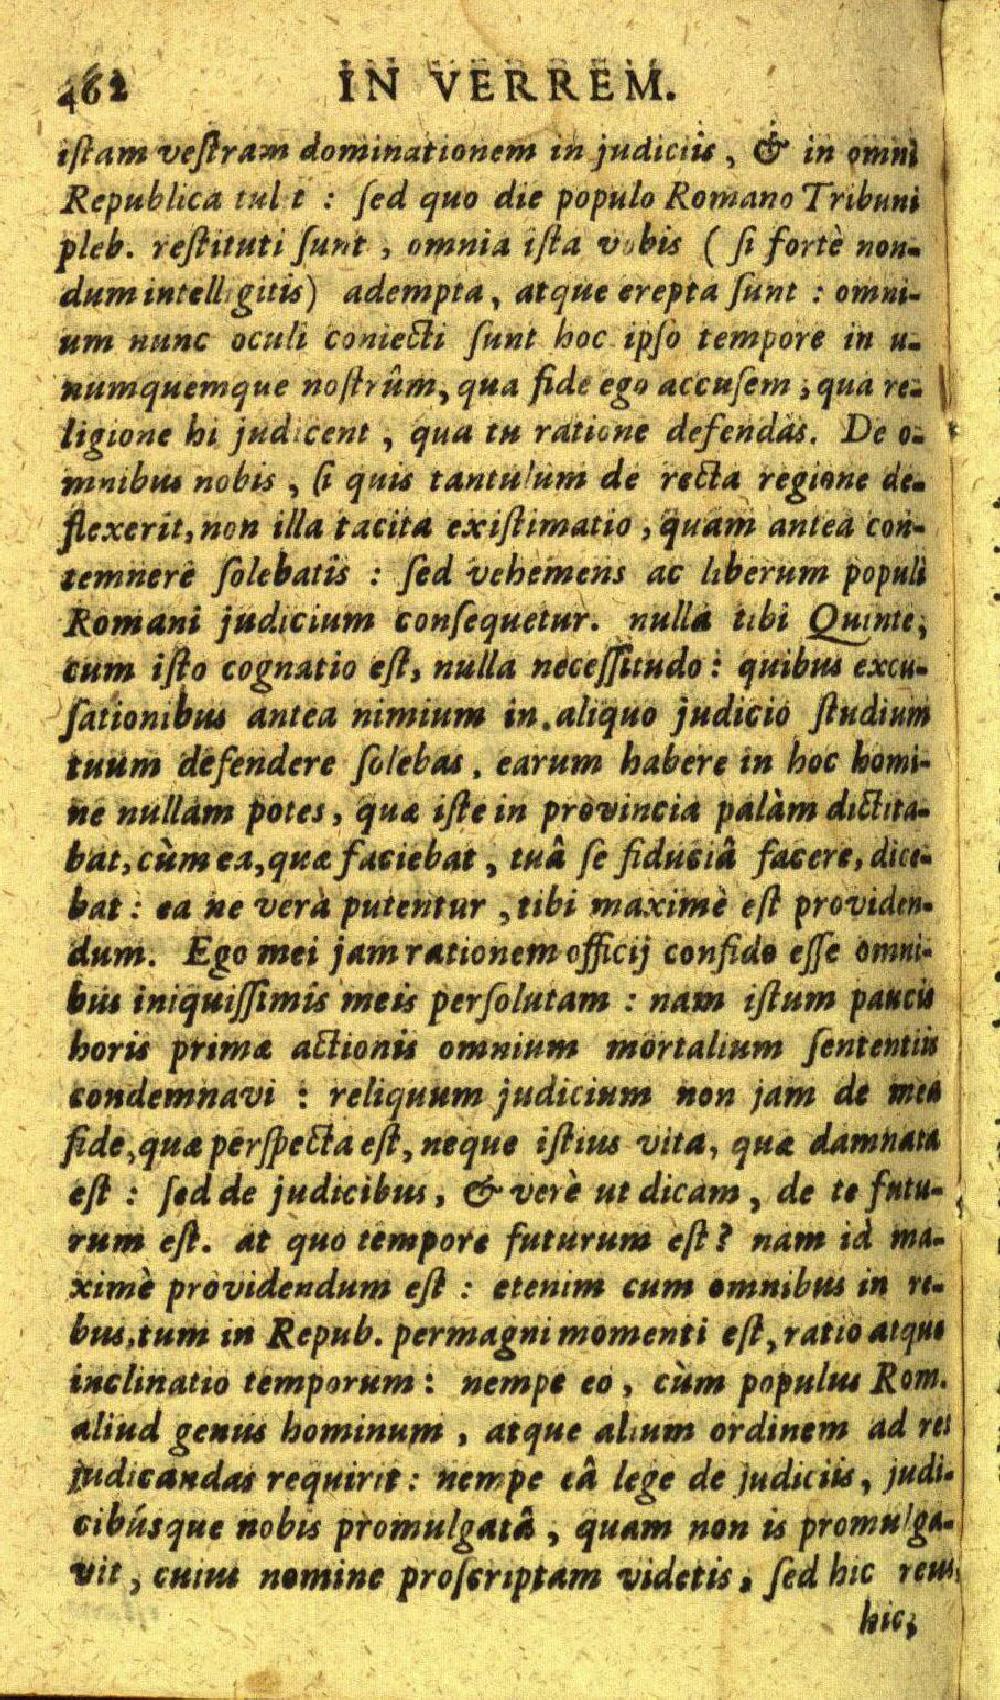 462 IN VERREM.
iſtam veſtram dominationem in judiciis, & in omni
Republica tulit : ſed quo die populo Romano Tribuni
pleb. reſtituti ſunt, omnia iſta vobis ( ſi fortè non-
dum intelligitis) adempta, atque erepta ſunt : omni-
um nunc oculi coniecti ſunt hoc ipſo tempore in u-
numquemque noſtrûm, qua fide ego accuſem, qua re-
ligione hi judicent, qua tu ratione defendas. De o-
mnibus nobis, ſi quis tantulum de recta regione de-
flexerit, non illa tacita exiſtimatio, quam antea con-
temnere ſolebatis : ſed vehemens ac liberum populi
Romani judicium conſequetur. nulla tibi Quinte,
cum iſto cognatio eſt, nulla neceſſitudo : quibus excu-
ſationibus antea nimium in aliquo judicio ſtudium
tuum defendere ſolebas, earum habere in hoc homi-
ne nullam potes, quæ iſte in provincia palàm dictita-
bat, cùm ea, quæ faciebat, tuâ ſe fiduciâ facere, dice-
bat : ea ne verà putentur, tibi maximè eſt providen-
dum. Ego mei jam rationem officij confido eſſe omni-
bus iniquiſſimis meis perſolutam : nam iſtum paucis
horis primæ actionis omnium mortalium ſententiis
condemnavi : reliquum judicium non jam de mea
fide, quæ perſpecta eſt, neque iſtius vita, quæ damnata
eſt : ſed de judicibus, & verè ut dicam, de te futu-
rum eſt. at quo tempore futurum eſt? nam id ma-
ximè providendum eſt : etenim cum omnibus in re-
bus, tum in Repub. permagni momenti eſt, ratio atque
inclinatio temporum : nempe eo, cùm populus Rom.
aliud genus hominum, atque alium ordinem ad res
judicandas requirit : nempe eâ lege de judiciis, judi-
cibúsque nobis promulgatâ, quam non is promulga-
vit, cuius nomine proſcriptam videtis, ſed hic reus,
hic,